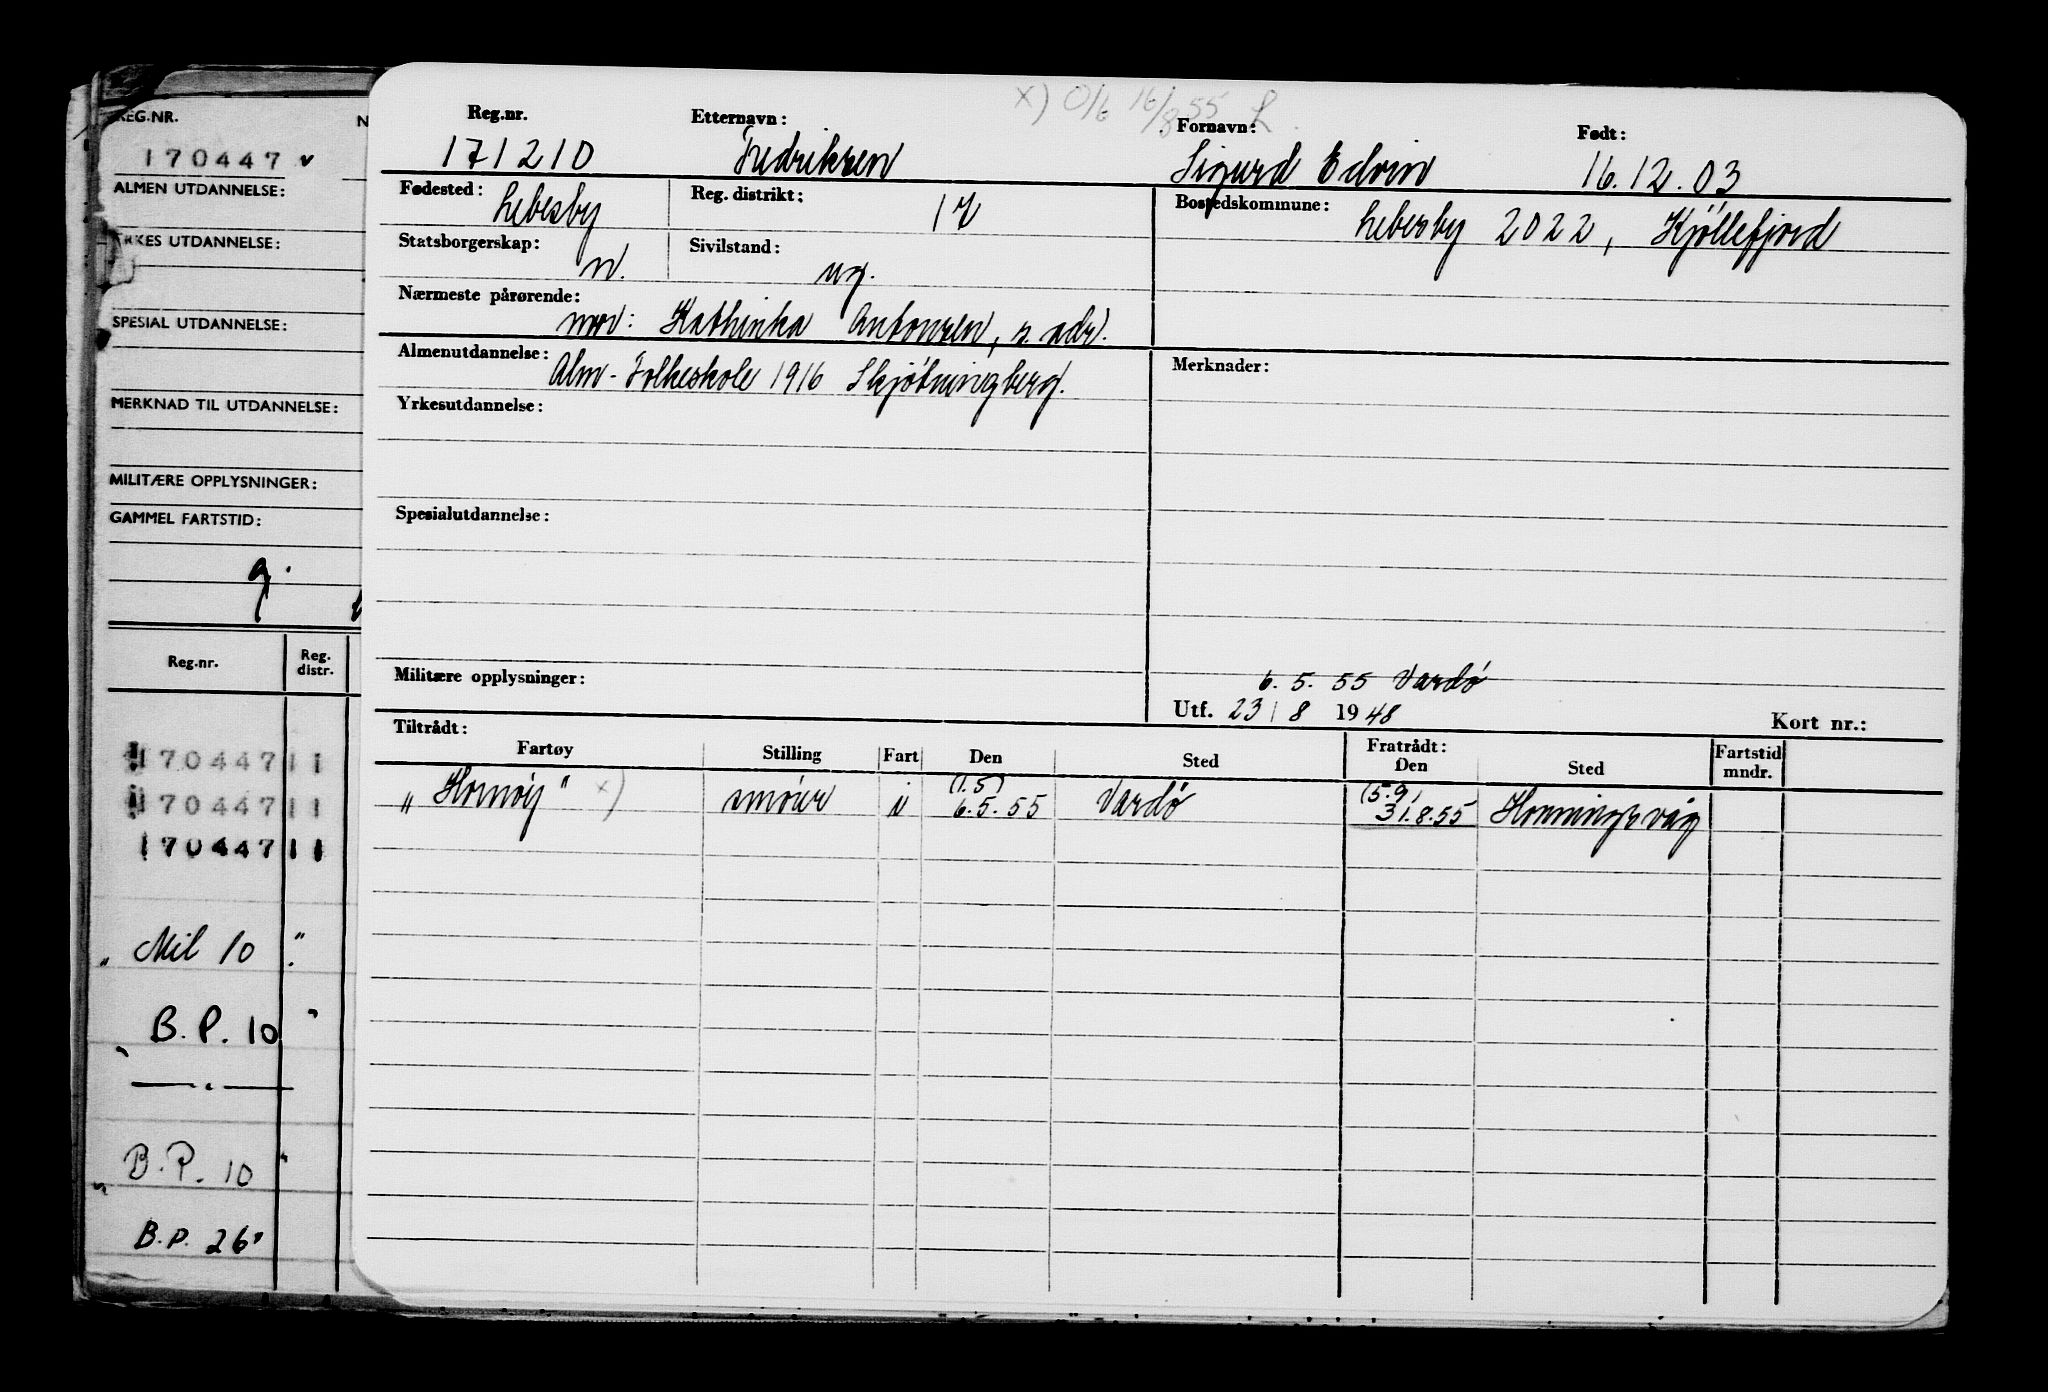 x) O/6 16/8 55
Reg.nr. Etternavn: Fornavn: Født:
171210 Fredriksen Sigurd Edvin 16.12.03
Fødested: Lebesby Reg. distrikt: 17 Bostedskommune: Lebesby 2022, Kjøllefjord
Statsborgerskap: n. Sivilstand: ug.
Nærmeste pårørende:
mor: Kathinka Antonsen, s. adr.
Almenutdannelse: Alm - Folkeskole 1916 Skjøtningberg. Merknader:
Yrkesutdannelse:
Spesialutdannelse:
Militære opplysninger: 6. 5. 55 Vardø
Utf. 23/8 1948 Kort nr.:
Tiltrådt: Fratrådt:
Fartøy Stilling Fart Den Sted Den Sted Fartstid mndr.
(1.5) (5.9)
„Hornøy" x) smører i 6.5.55 Vardø 31.8.55 Honningsvåg
REG.NR. N
170447 v
ALMEN UTDANNELSE:
RKES UTDANNELSE:
SPESIAL UTDANNELSE:
MERKNAD TIL UTDANNELSE:
MILITÆRE OPPLYSNINGER:
GAMMEL FARTSTID:
g.
Reg.nr. Reg. distr.
170447 11
170447 11
170447 11
„ Mil 10 "
B.P. 10 "
— " —
B.P. 10 "
B.P. 26"